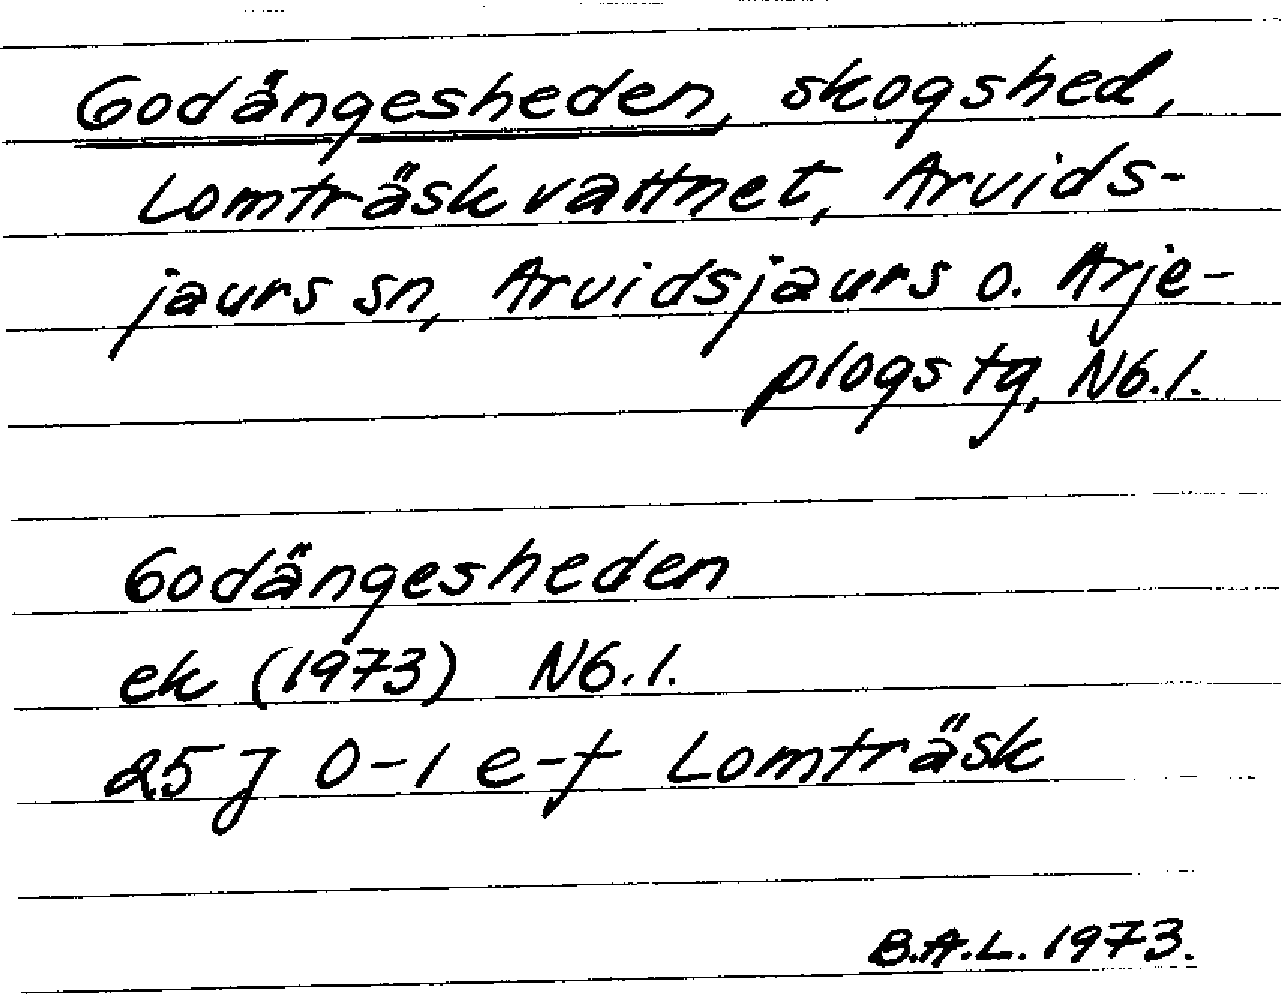 Godängesheden, skogshed,
Lomträskvattnet, Arvids-
jaurs sn, Arvidsjaurs o. Arje-
plogs tg, Nb.l.
Godängesheden
ek (1973) Nb.l.
25 J 0-1 e-f Lomträsk
B.A.L. 1973.